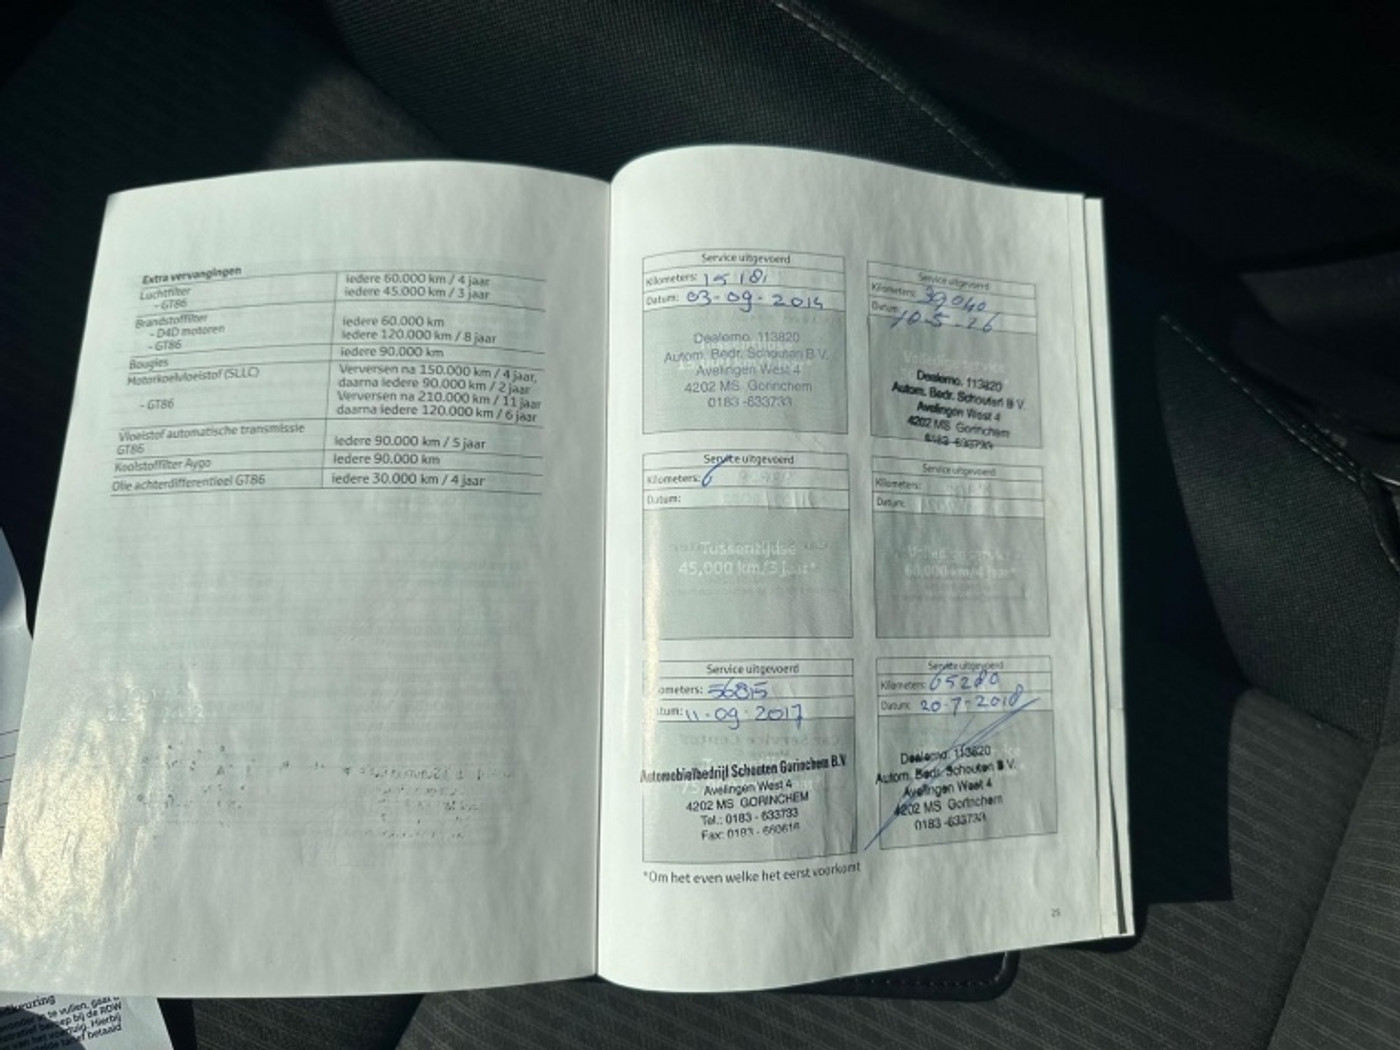 Extra vervangingen
Luchtfilter iedere 60.000 km / 4 jaar
- GT86 iedere 45.000 km / 3 jaar
Brandstoffilter
- D4D motoren iedere 60.000 km
- GT86 iedere 120.000 km / 8 jaar
Bougies iedere 90.000 km
Motorkoelvloeistof (SLLC) Verversen na 150.000 km / 4 jaar,
daarna iedere 90.000 km / 2 jaar
- GT86 Verversen na 210.000 km / 11 jaar
daarna iedere 120.000 km / 6 jaar
Vloeistof automatische transmissie
GT86 iedere 90.000 km / 5 jaar
Koolstoffilter Aygo iedere 90.000 km
Olie achterdifferentieel GT86 iedere 30.000 km / 4 jaar
Service uitgevoerd
Kilometers: 15181
Datum: 03-09-2014
Dealerno. 113820
Autom. Bedr. Schouten B.V.
Avelingen West 4
4202 MS Gorinchem
0183-633733
Service uitgevoerd
Kilometers: 39040
Datum: 10-5-16
Dealerno. 113820
Autom. Bedr. Schouten B.V.
Avelingen West 4
4202 MS Gorinchem
0183-633733
Service uitgevoerd
Kilometers: 6
Datum:
Tussentijdse
45,000 km/3 jaar*
Service uitgevoerd
Kilometers:
Datum:
60,000 km/4 jaar*
Service uitgevoerd
ometers: 56815
tum: 11-09-2017
Automobielbedrijf Schouten Gorinchem B.V.
Avelingen West 4
4202 MS GORINCHEM
Tel.: 0183 - 633733
Fax: 0183 - 660616
Service uitgevoerd
Kilometers: 65280
Datum: 20-7-2018
Dealerno. 113820
Autom. Bedr. Schouten B.V.
Avelingen West 4
4202 MS Gorinchem
0183-633733
*Om het even welke het eerst voorkomt
25